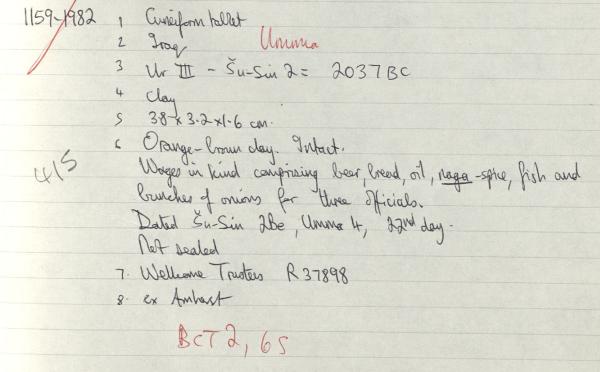 1159-1982 1 Cuneiform tablet
2 Iraq Umma
3 Ur III - Šu-Sin 2 = 2037 BC
4 Clay
5 38 x 3.2 x 1.6 cm.
6 Orange-brown clay. Intact.
Wages in kind comprising beer, bread, oil, naga-spice, fish and
bunches of onions for three officials.
Dated Šu-Sin 2Be, Umma 4, 22nd day.
Not sealed
7. Wellcome Trustees R 37898
8. ex Amherst
415
BCT 2, 65